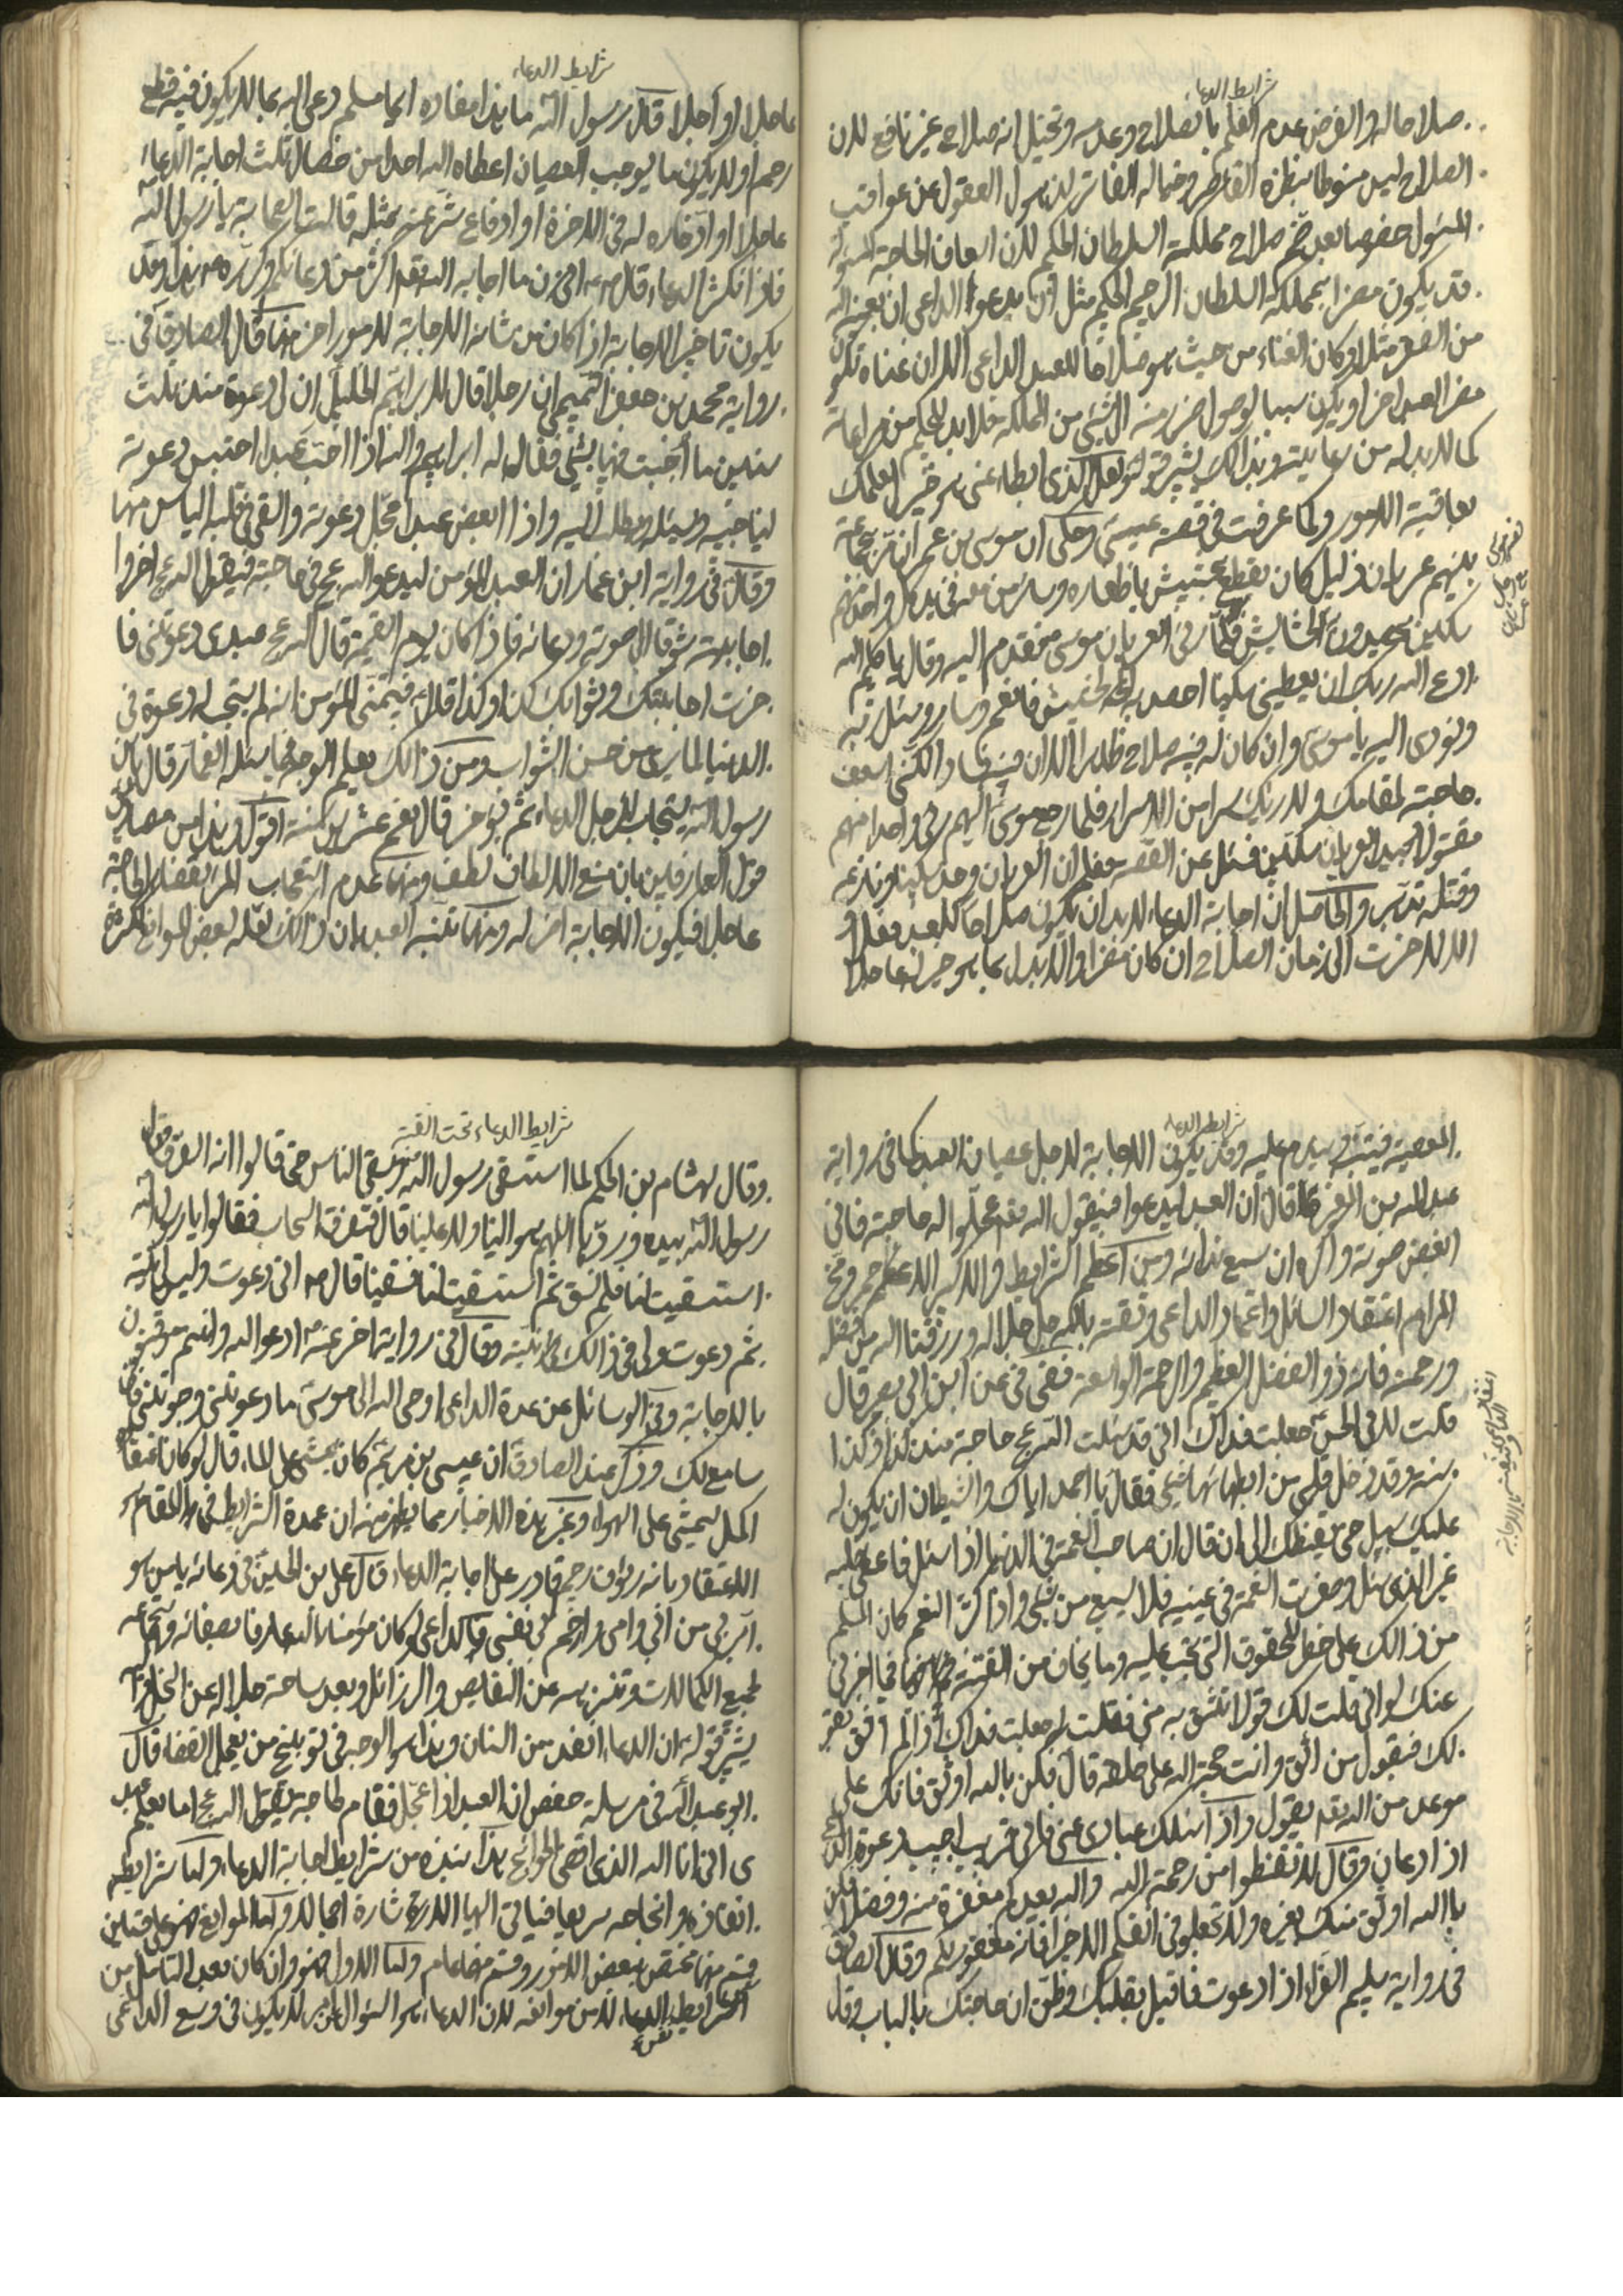 شرايط الدعاء
صلاحا له والفرض عدم العلم بالصلاح وعدمه وتخيل انه صلاح غير نافع لان
الصلاح ليس منوطا بنظره القاصر وخياله الفاتر لذهول العقول عن عواقب
المسئول خصوصا بعد ضم صلاح مملكة السلطان الحكيم لان اسعاف الحاجة المسئولة
قد يكون مضرا بمملكة السلطان الرحيم الحكيم مثل ان يدعوا الداعى ان يعينه الله
من الفقر مثلا وكان الغناء من حيث هو صلاحا للعبد الداعى الا ان غناه تكون
مضر العبد اخر او يكون سببا لوصول ضرر منه الى شئ من المملكة فلا بد للحكيم من مراعاته
كما لا بد له من رعايته وبذالك يشير قوله ولعل الذى ابطاء عنى هو خير لعلمك
بعاقبة الامور ولما عرفت فى قصة عيسى وحكى ان موسى بن عمران مر بجماعة
بينهم عريان ذليل كان يقطع الحشيش باظفاره وسائر من معه فى يد كل واحد منهم
سكين يحصدون الحشايش فلما رأى العريان موسى تقدم اليه وقال يا كليم الله
ادع الله ربك ان يعطينى سكينا احصد به الحشيش فانعم وسار وسئل ربه
ونودى اليه يا موسى وان كان له فيه صلاح ظاهرا الا ان فيه فساد لكنى اسعف
حاجته لمقامك ولاريك سرا من الاسرار فلما رجع موسى اليهم رأى واحدا منهم
مقتولا بيد العريان بسكين فسئل عن القصة فعلم ان العريان وجد سكينا ونازعه
وقتله تدبر والحاصل ان اجابة الدعاء لا بد ان يكون صلاحا للعبد فعلا و
الا لاخرت الى زمان الصلاح ان كان مضرا والا يبدل بما هو خير له عاجلا
شرايط الدعاء
عاجلا او آجلا قال رسول الله ما هذا مفاده ايما مسلم دعى الله بما لا يكون فيه قطع
رحم او لا يكون ما يوجب العصيان اعطاه الله احدا من خصال ثلث اجابة الدعاء
عاجلا او ادخاره له فى الاخرة او ادفاع شر عنه بمثله قالت الصحابة يا رسول الله
فاذا نكثر الدعاء قال ص
يكون تاخير الاجابة اذا كان من شانه الاجابة لامور اخر منها قال الصادق فى
رواية محمد بن جعفر التميمى ان رجلا قال لابراهيم الخليل ان لى دعوة منذ ثلث
سنين ما اجبت فيها بشئ فقال له ابراهيم ان الله اذا احب عبدا احتبس دعوته
ليناجيه ويسئله ويطلب اليه واذا ابغض عبدا عجل دعوته والقى فى قلبه الياس منها
وقال فى رواية ابن عمار ان العبد المؤمن ليدعو الله عج فى حاجته فيقول الله عج اخروا
اجابته شوقا الى صوته ودعائه فاذا كان يوم القيمة قال الله عج عبدى دعوتنى فا
خرت اجابتك وثوابك كذا وكذا قال فيتمنى المؤمن انه لم يستجب له دعوة فى
الدنيا لما يرى من حسن الثواب ومن ذالك يعلم الوجه فيما سئله الغمار قال
رسول الله يستجاب للرجل الدعاء ثم يؤخر قال نعم عشرين سنة اقول وهذا من مصاديق
قول العارفين بان منع الالطاف لطف ومنها عدم استحباب المرء بقضاء الحاجة
عاجلا فيكون الاجابة اخر له ومنها تنبيه العبد بان ذالك لعله لبعض الموانع
شرايط الدعاء
المعصية فيتنبه ويندم عليه وقد يكون الاجابة لاجل عصيان العبد كما فى رواية
عبد الله بن المغيرة قال ان العبد ليدعوا فيقول الله تعم عجلوا له حاجته فانى
ابغض صوته واكره ان سمع ندائه ومن اعظم الشرايط والاكسير الاعظم
المرام اعتقاد السائل واعتماد الداعى وثقته بالله جل جلاله ورزقنا الله من فضله
ورحمته فانه ذو الفضل العظيم والرحمة الواسعة ففى فى عن ابن ابى بصير قال
قلت لابى الحسن جعلت فداك انى قد سئلت الله عج حاجة منذ كذا وكذا
سنة وقد دخل قلبى من ابطائها شئ فقال يا احمد اياك والشيطان ان يكون له
عليك سبيل حتى يقنطك الى ان قال ان صاحب النعمة فى الدنيا اذا سئل فاعطى طلب
غير الذى سئل وصغرت النعمة فى عينيه فلا يشبع من شئ واذا كثر النعم كان المسلم
من ذالك على خطر للحقوق التى تجب عليه وما يخاف من الفتنة فيها اخبرنى
عنك لو انى قلت لك قولا اتثق به منى فقلت له جعلت فداك اذا لم اثق بقو
لك فبقول من اثق وانت حجة الله على خلقه قال فكن بالله اوثق فانك على
موعد من الله تعم يقول واذا سئلك عبادى عنى فانى قريب اجيب دعوة الداع
اذا دعان وقال لا تقنطوا من رحمة الله والله يعدكم مغفرة منه وفضلا فكن
باالله اوثق منك بغيره ولا تجعلو فى انفسكم الا خيرا فانه مغفور لكم وقال الصادق
فى رواية سليم الفراء اذا دعوت فاقبل بقلبك وظن ان حاجتك بالباب وقا
شرايط الدعاء تحت القبة
وقال هشام بن الحكم لما استسقى رسول الله وسقى الناس حتى قالوا انه الغرق وقال
رسول الله بيده وردها اللهم حوالينا ولا علينا قال فتفرق السحاب فقالوا يا رسول الله
استسقيت لنا فلم نسق ثم استسقيت لنا فسقينا قال ص انى دعوت وليس لى نية
ثم دعوت ولى فى ذالك نية وقال فى رواية اخر عنه ص ادعوا الله وانتم موقنون
بالاجابة وفى الوسائل عن عدة الداعى اوحى الله الى موسى ما دعوتنى ورجوتنى فانى
سامع لك وذكر عند الصادق ان عيسى بن مريم كان يمشى على الماء قال لو كان يقينه
اكمل لمشى على الهواء وغير هذه الاخبار مما يظهر منه ان عمدة الشرايط فى المقام
الاعتقاد بانه رؤف رحيم قادر على اجابة الدعاء قال على بن الحسين فى دعائه يا من هو
ابر بى من ابى وامى وارحم بى من نفسى
لجميع الكمالات وتنزيهه عن النقايص والرزائل وبعد ساحة جلاله عن البخل
يشير قوله ان الدعاء انفذ من السنان وهذا هو الوجه فى توبيخ من يعجل القضا قال
ابو عبد الله فى مرسلة حفص ان العبد اذا عجل فقام لحاجته يقول الله عج اما يعلم عبد
ى انى انا الله الذى اقضى الحوائج هذا نبذه من شرايط اجابة الدعاء واما شرايط
انفاذه وانجاحه سريعا فياتى اليها الاشارة اجمالا واما الموانع فهو على قسمين
قسم منها تختص ببعض الامور وقسم منها عام واما الاول فهو وان كان بعد التامل من
الشرايط الدعاء لا من موانعه لان الدعاء هو السؤال من لا يكون فى وسع الداعى